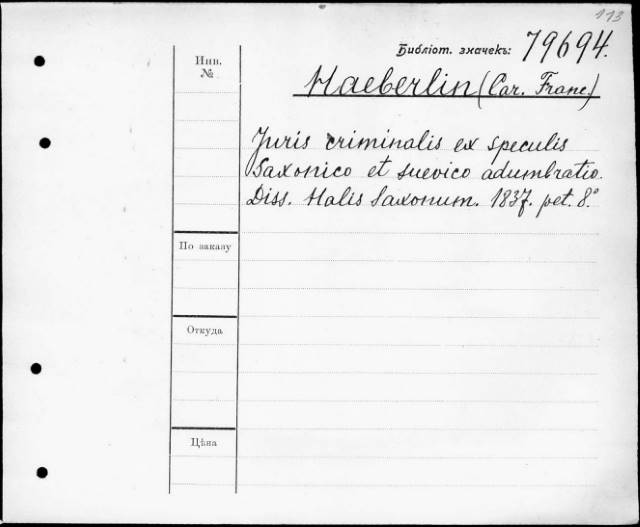 113
Библіот. значекъ: 79694.
Инв.
№
Haeberlin (Car. Franc)
Juris criminalis ex speculis
Saxonico et suevico adumbratio.
Diss. Halis Saxonum. 1837. pet. 8.°
По заказу
Откуда
Цѣна